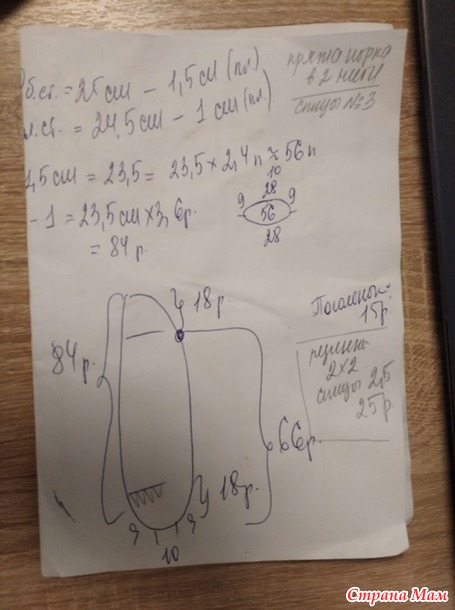 пряжа норка
в 2 нити
спицы № 3
Об.ст. = 25 см - 1,5 см (пл)
л.ст. = 24,5 см - 1 см (пл)
1,5 см = 23,5 = 23,5 × 2,4 п ≈ 56 п
- 1 = 23,5 см × 3,6 р.
= 84 р.
10
28
9 56 9
28
18 р.
84 р.
15 р.
резинка
2×2
спицы 2,5
25 р.
66 р.
18 р.
9 9
10
Страна Мам